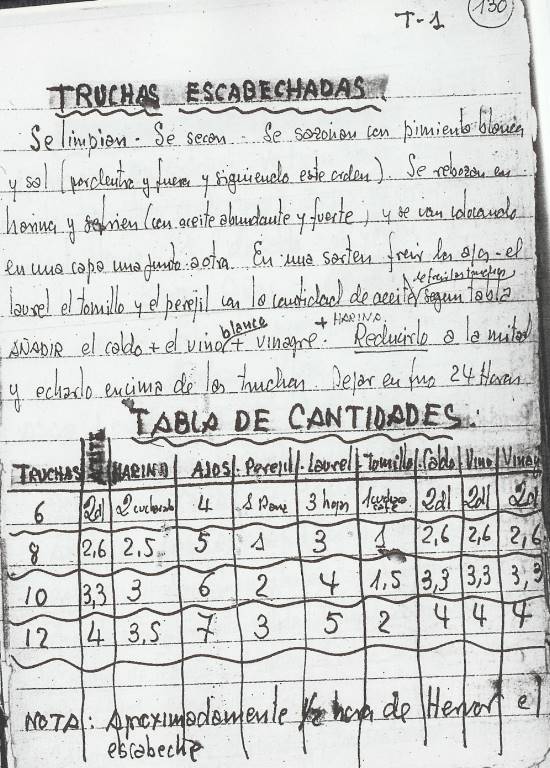 T-1 130
TRUCHAS ESCABECHADAS.
Se limpian - Se secan - Se sazonan con pimienta blanca
y sal (por dentro y fuera y siguiendo este orden). Se rebozan en
harina y se frien (con aceite abundante y fuerte) y se van colocando
en una capa una junto a otra. En una sarten freir los ajos - el
de freir las truchas
laurel el tomillo y el perejil con la cantidad de aceite segun tabla
blanco + HARINA.
AÑADIR el caldo + el vino + vinagre. Reducirlo a la mitad
y echarlo encima de las truchas. Dejar en frio 24 Horas
TABLA DE CANTIDADES:
TRUCHAS ACEITE HARINA AJOS Perejil Laurel Tomillo Caldo Vino Vinag
6 2dl 2 cucharads 4 1 Rama 3 hojas 1 cuchara cafe 2dl 2dl 2dl
8 2,6 2,5 5 1 3 1 2,6 2,6 2,6
10 3,3 3 6 2 4 1,5 3,3 3,3 3,3
12 4 3,5 7 3 5 2 4 4 4
NOTA: Aproximadamente 1/2 hora de Hervor el
escabeche